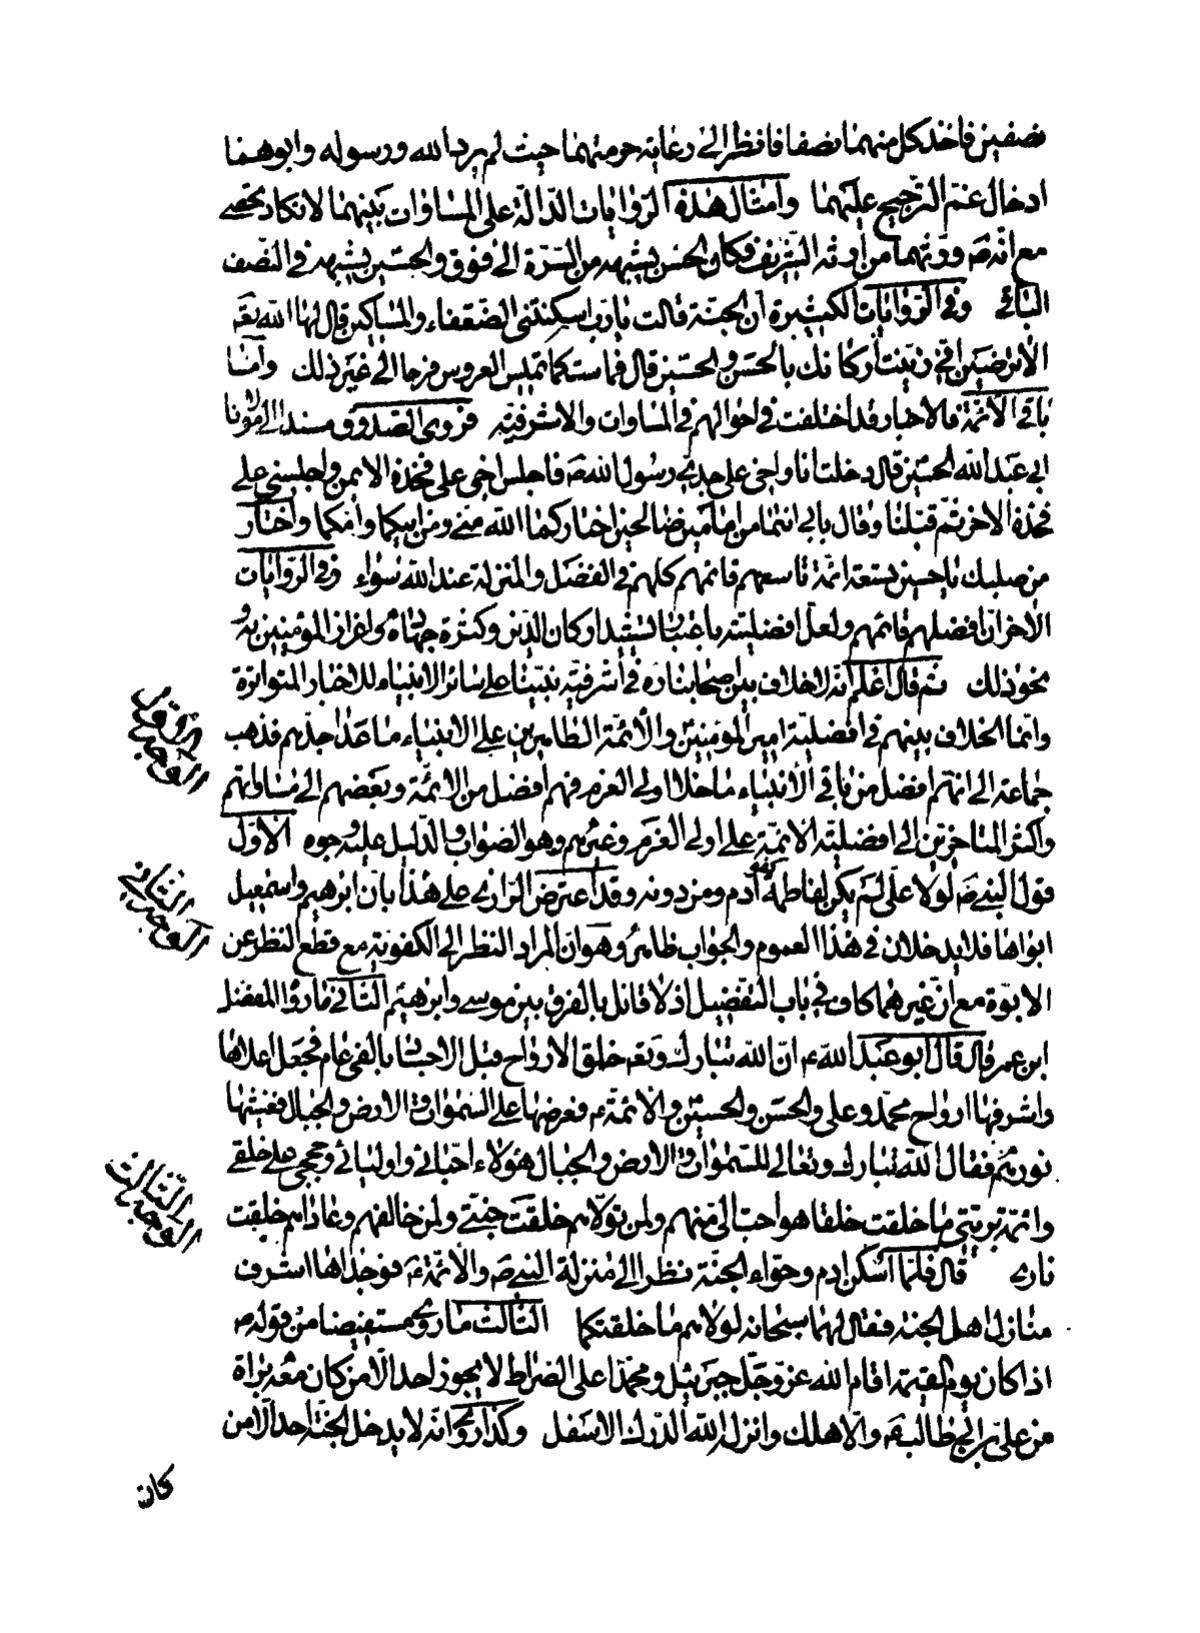 نصفين فاخذ كل منهما نصفا فانظر الى رعاية حرمتهما حيث لم يرد الله ورسوله وابوهما
ادخال غم الترجيح عليهما وامثال هذه الروايات الدالة على المساوات بينهما لا تكاد تحصى
مع انه ص ورثهما من ارثه الشريف فكان الحسن يشبهه من السرة الى فوق والحسين يشبهه في النصف
الثاني وفي الروايات الكثيرة ان الجنة قالت يا رب اسكنتنى الضعفاء والمساكين قال لها الله تعه
الا ترضين اني زينت اركانك بالحسن والحسين قال فماست كما تميس العروس فرحا الى غير ذلك واما
باقي الائمة فالاخبار قد اختلفت في احوالهم في المساوات والاشرفية فروى الصدوق مسندا الى مولانا
ابي عبد الله الحسين قال دخلت انا واخى على جدي رسول الله ص فاجلس اخى على فخذه الايمن واجلسني على
فخذه الاخر ثم قبلنا وقال بابي انتما من امامين صالحين اختاركما الله مني ومن ابيكما وامكما واختار
من صلبك يا حسين تسعة ائمة تاسعهم قائمهم كلهم في الفضل والمنزلة عند الله سواء وفي الروايات
الاخر ان افضلهم قائمهم ولعل افضليته باعتبار تشييد اركان الدين وكثرة جهاده واعزاز المؤمنين به و
نحو ذلك ثم قال اعلم انه لا خلاف بين اصحابنا ره في اشرفية نبينا على سائر الانبياء للاخبار المتواترة
وانما الخلاف بينهم في افضلية امير المؤمنين والائمة الطاهرين على الانبياء ما عدا جدهم فذهب
جماعة الى انهم افضل من باقي الانبياء ما خلا اولى العزم فهم افضل من الائمة وبعضهم الى مساواتهم
واكثر المتاخرين الى افضلية الائمة على اولى العزم وغيرهم وهو الصواب والدليل عليه وجوه الاول
قول النبي ص لولا علي لم يكن لفاطمة كفو آدم ومن دونه وقد اعترض الرازي على هذا بان ابرهيم واسمعيل
ابواها فلا يدخلان في هذا العموم والجواب ظاهر وهو ان المراد النظر الى الكفوية مع قطع النظر عن
الابوة مع ان غيرهما كاف في باب التفضيل اذ لا قائل بالفرق بين موسى وابرهيم الثاني ما رواه المفضل
ابن عمر قال قال ابو عبد الله ع ان الله تبارك وتعه خلق الارواح قبل الاجساد بالفى عام فجعل اعلاها
واشرفها ارواح محمد وعلي والحسن والحسين والائمة ع فعرضها على السموات والارض والجبال فغشيها
نورهم فقال الله تبارك وتعالى للسموات والارض والجبال هؤلاء احبائي واوليائي وحججي على خلقي
وائمة بريتي ما خلقت خلقا هو احب الى منهم ولمن تولاهم خلقت جنتي ولمن خالفهم وعاداهم خلقت
ناري قال فلما اسكن ادم وحواء الجنة نظرا الى منزلة النبي ص والائمة ع فوجداها اشرف
منازل اهل الجنة فقال لهما سبحانه لولاهم ما خلقتكما الثالث ما روى مستفيضا من قوله ص
اذا كان يوم القيمة اقام الله عز وجل جبرئيل ومحمدا على الصراط لا يجوز احد الا من كان معه براة
من علي بن ابي طالب ع والا هلك وانزله الله الدرك الاسفل وكذا روى انه لا يدخل الجنة احد الا من
كان
الوجه الاول
الوجه الثاني
الوجه الثالث